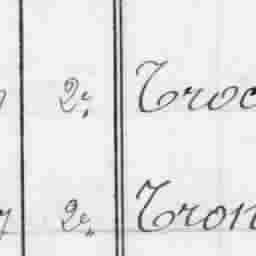 2; Troc
2; Tron